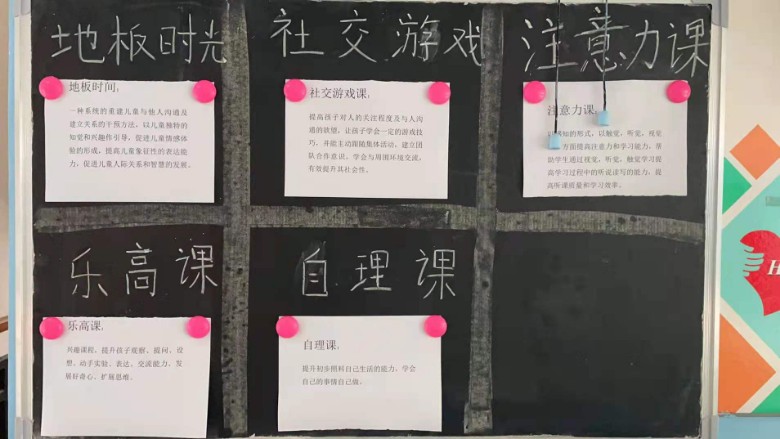 地板时光
社交游戏
注意力课
地板时间,
一种系统的重建儿童与他人沟通及
建立关系的干预方法，以儿童独特的
知觉和兴趣作引导，促进儿童情感体
验的形成，提高儿童象征性的表达能
力，促进儿童人际关系和智慧的发展。
社交游戏课,
提高孩子对人的关注程度及与人沟
通的欲望，让孩子学会一定的游戏技
巧，并能主动跟随集体活动，建立团
队合作意识，学会与周围环境交流，
有效提升其社会性。
注意力课,
知的形式，以触觉，听觉，视觉
方面提高注意力和学习能力，帮
助学生通过视觉，听觉，触觉学习提
高学习过程中的听说读写的能力，提
高听课质量和学习效率。
乐高课
自理课
乐高课,
兴趣课程，提升孩子观察，提问，设
想，动手实验，表达，交流能力，发
展好奇心，扩展思维。
自理课,
提升初步照料自己生活的能力，学会
自己的事情自己做。
H